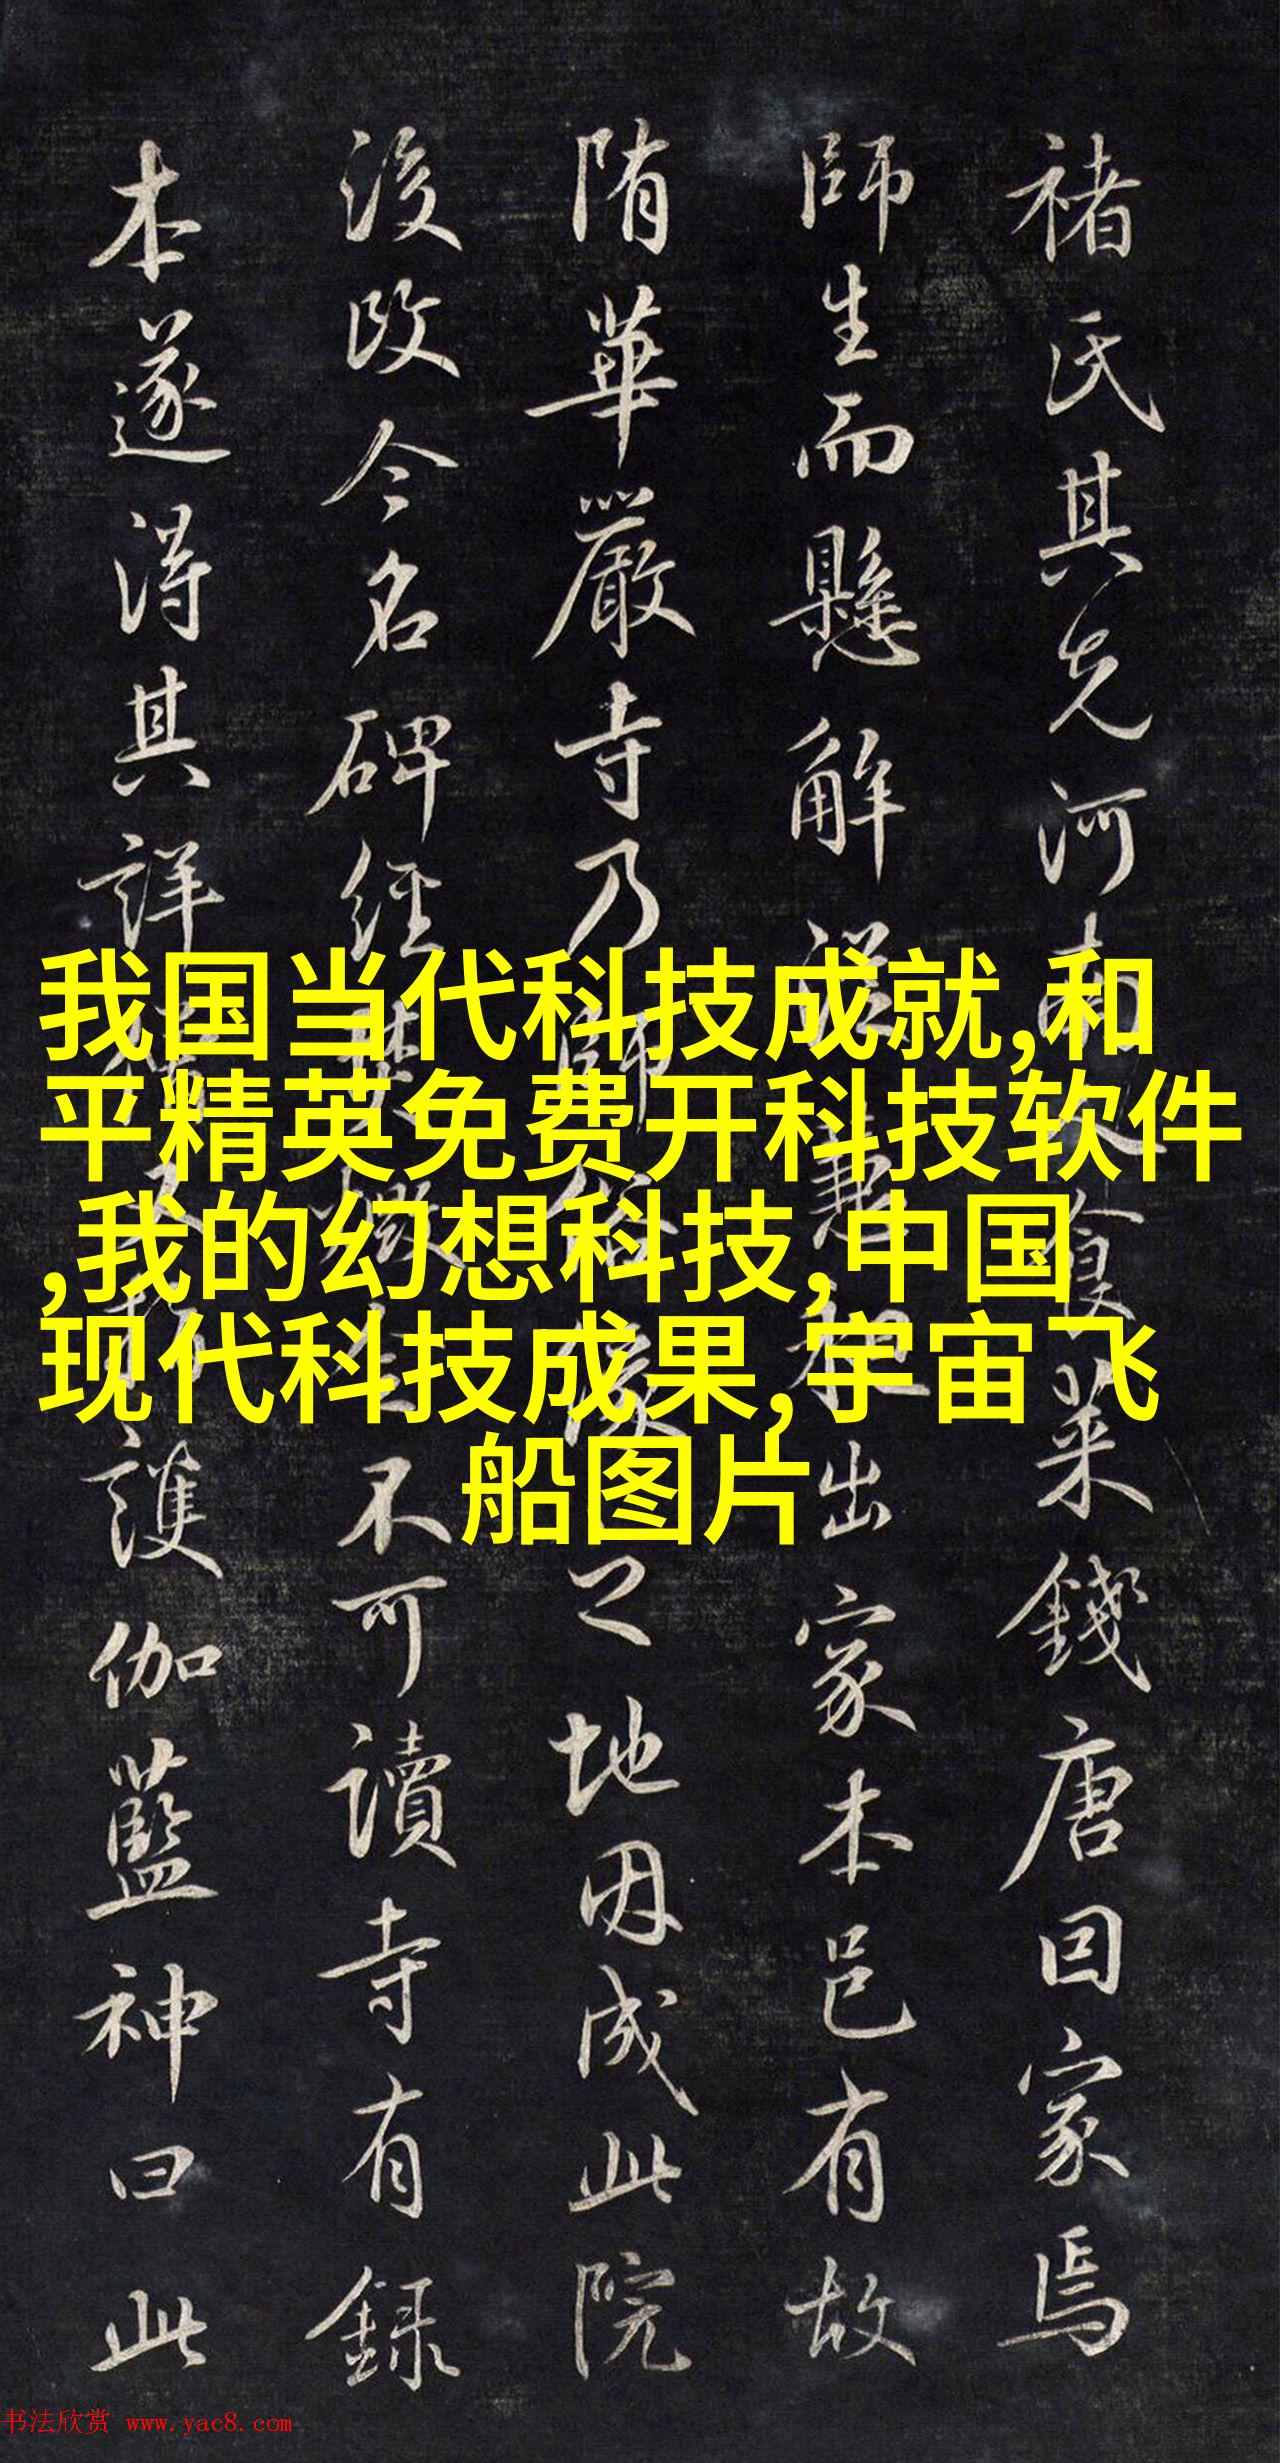 褚氏其先河南人食菜錢唐因家焉
師生而懸解出家本邑有故
隋華嚴寺乃師之地因成此院
後改今名碑經不可讀寺有録
本遂得其詳護伽藍神曰此
我国当代科技成就,和
平精英免费开科技软件
,我的幻想科技,中国
现代科技成果,宇宙飞
船图片
书法欣赏 www.yac8.com